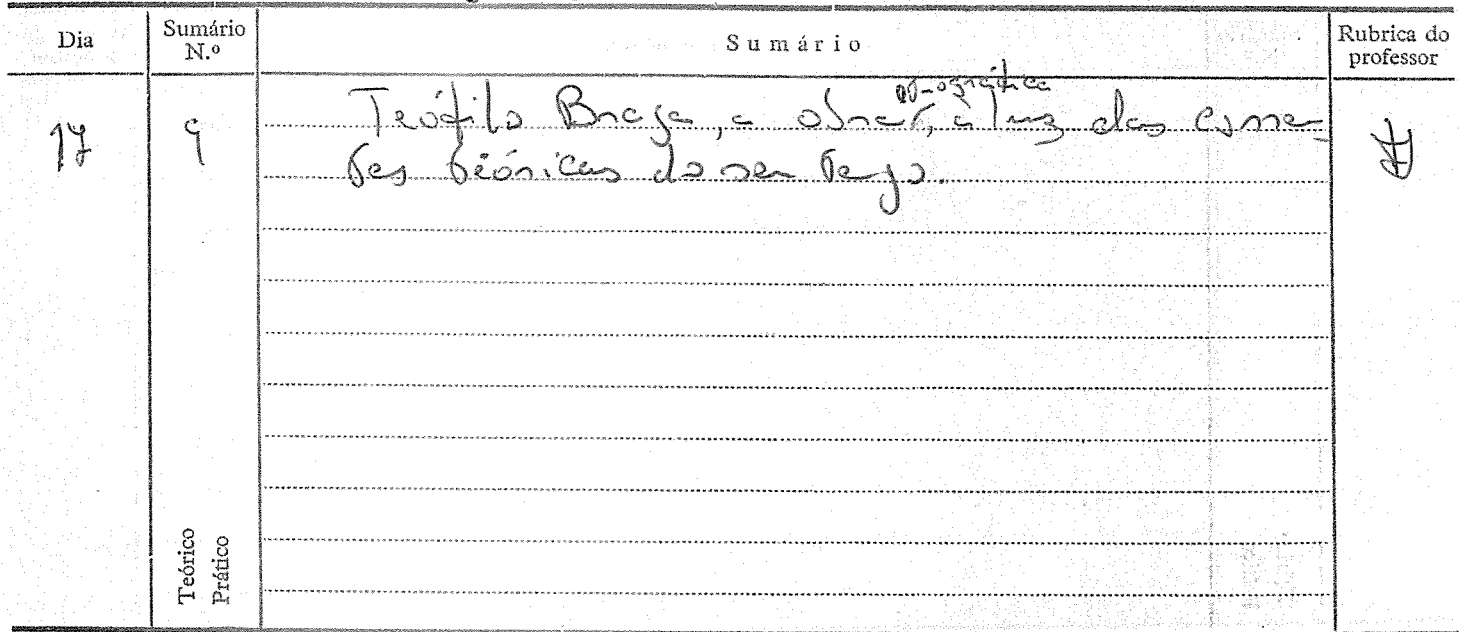 Dia Sumário N.º Sumário Rubrica do professor
17 9 Teófilo Braga, a obra etnográfica, à luz das corren-
tes teóricas do seu tempo.
Teórico
Prático